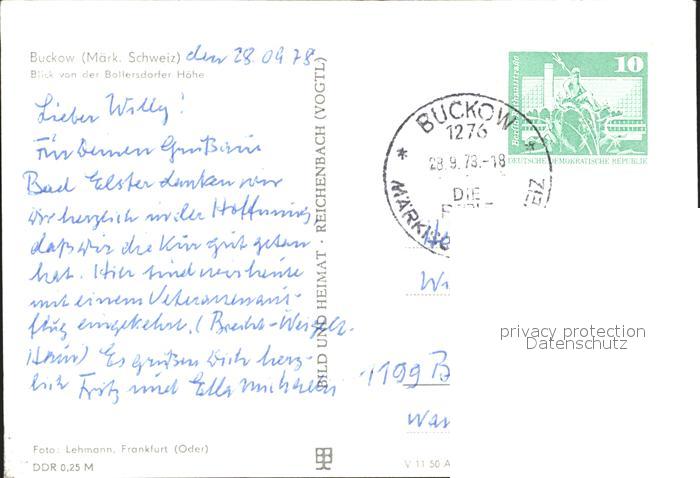 Buckow (Märk. Schweiz) den 28.09.78
Blick von der Bollersdorfer Höhe
Lieber Willy!
Für Deinen Gruß aus
Bad Elster danken wir
Dir herzlich in der Hoffnung
daß Dir die Kur gut getan
hat. Hier sind wir heute
mit einem Veteranenaus-
flug eingekehrt. (Brecht-Weigel-
Haus) Es grüßen Dich herz-
lich Fritz und Ella
BILD UND HEIMAT · REICHENBACH (VOGTL)
Foto: Lehmann, Frankfurt (Oder)
DDR 0,25 M
V 11 50 A
10
DEUTSCHE DEMOKRATISCHE REPUBLIK
BUCKOW
1276
28.9.78.-18
DIE
MÄRKIS
EIZ
He
Wi
1199 B
War
privacy protection
Datenschutz